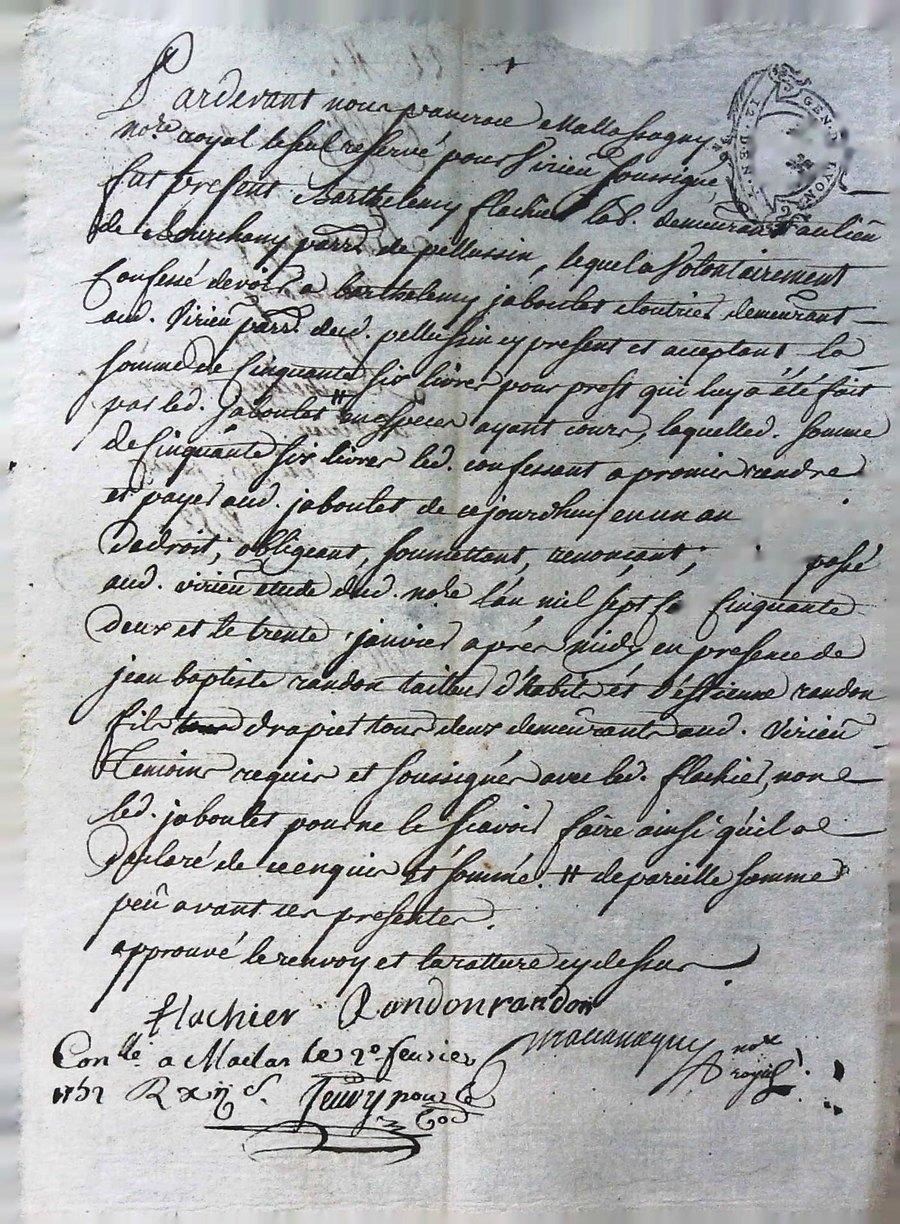 Pardevant nous pancrace Mallassagny
no.re royal le seul reservé pour Virieu soussigné,
fut present Barthelemy flachier lab. demeurant au lieu
de Bourchany parr. de pellussin, lequel a volontairement
Confessé devoir a barthelemy jaboulet cloutrier demeurant
aud. Virieu parr. dud. pellussin cy present et acceptant la
somme de Cinquante six livres pour prest qui luy a été fait
par led. jaboulet # en especes ayant cours, laquelle d. somme
de Cinquante six livres led. confessant a promis rendre
et payer aud. jaboulet de cejourdhuy en un an
dedroit; obligeant, soumettant, renonçant; passé
aud. virieu etude dud. no.re l'an mil sept Cinquante
deux et le trente janvier après midy en presence de
jean baptiste randon tailleur d'habit et d'estienne randon
fils drapier tous deux demeurants aud. Virieu
temoins requis et soussignés avec led. flachier, non
led. jaboulet pour ne le scavoir faire ainsi qu'il a
declaré de ce enquis et sommé. # de pareille somme
peu avant ces presentes.
approuvé le renvoy et la ratture cy dessus
flachier Randon randon
no.re
royal
Con.llé a Maclas le 2.e fevrier
1752 R xij s.